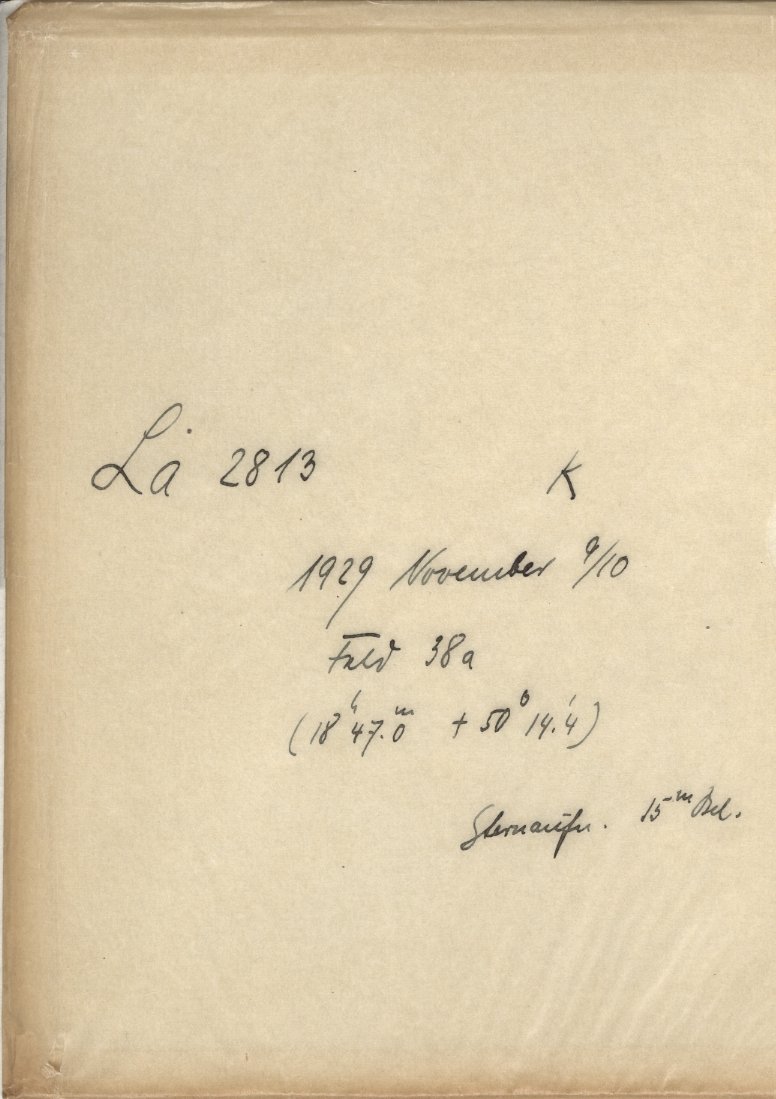 La 2813 K
1929 November 9/10
Feld 38a
(18ʰ47.ᵐ0 + 50°14.'4)
Sternaufn. 15ᵐ Bel.